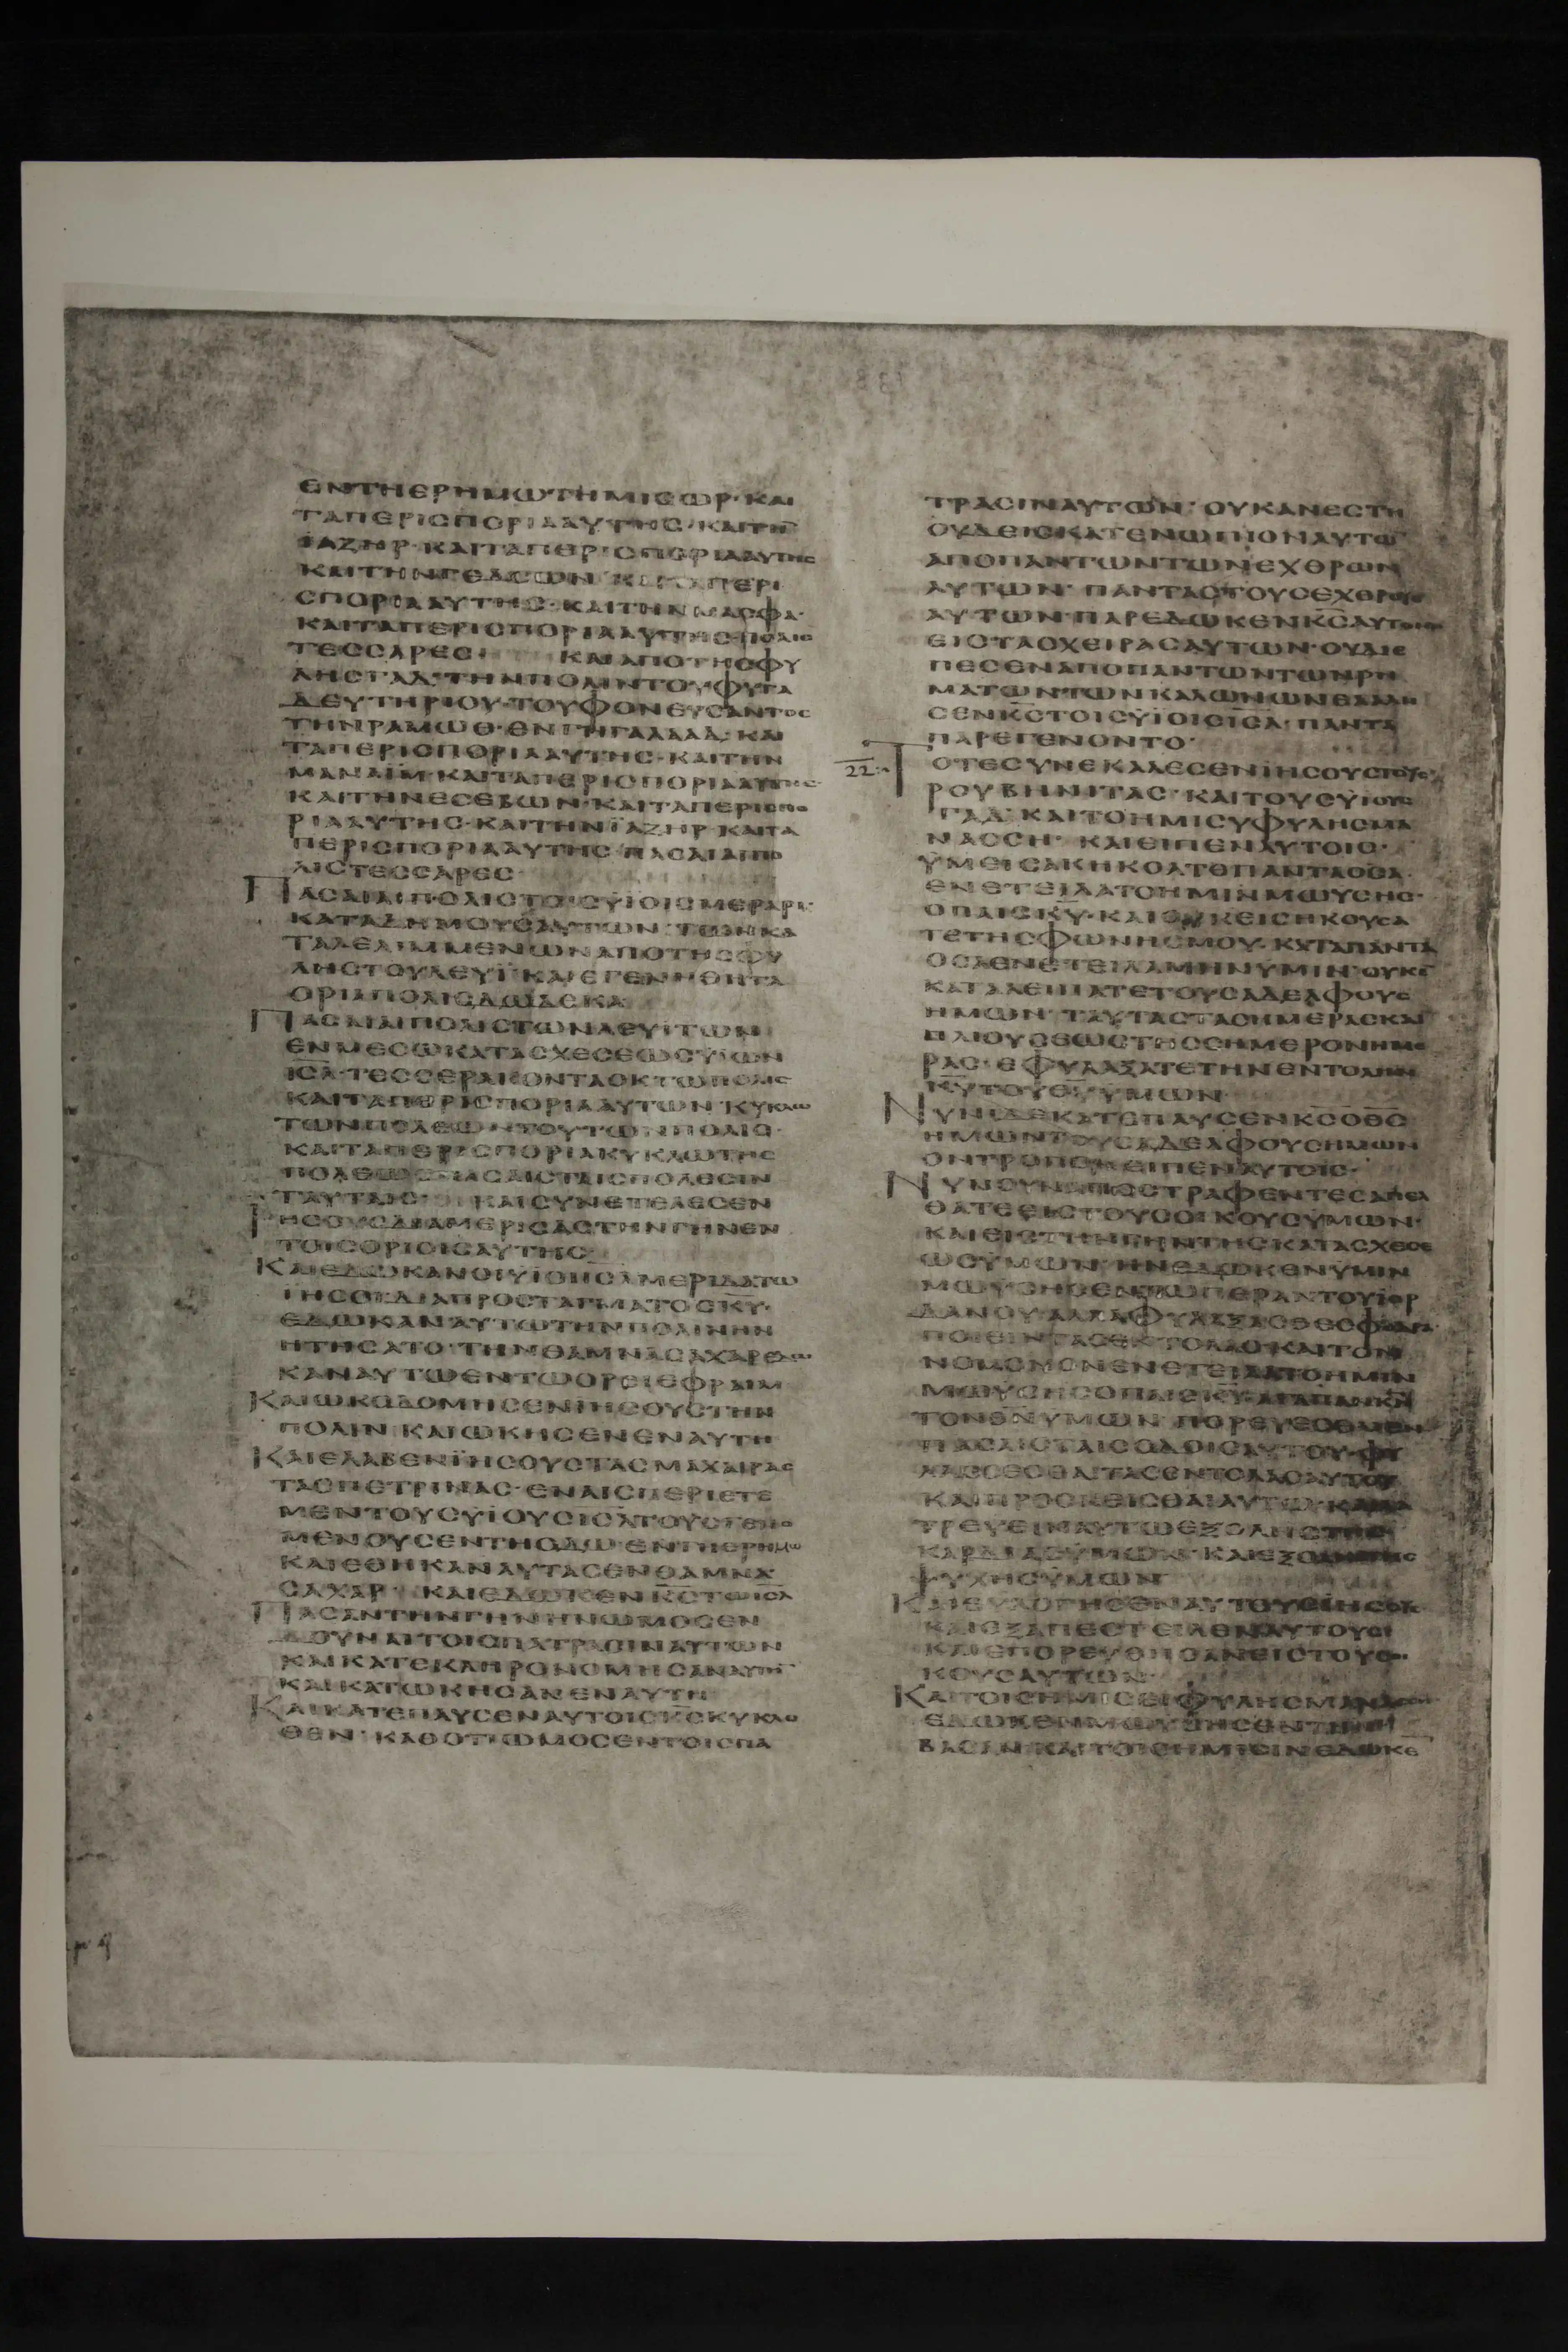 ΕΝΤΗΕΡΗΜΩΤΗΜΙΣΩΡ·ΚΑΙ
ΤΑΠΕΡΙΣΠΟΡΙΑΑΥΤΗΣ·ΚΑΙΤΗΝ
ΙΑΖΗΡ·ΚΑΙΤΑΠΕΡΙΣΠΟΡΙΑΑΥΤΗΣ
ΚΑΙΤΗΝΓΕΔΣΩΝ ΚΑΙΤΑΠΕΡΙ
ΣΠΟΡΙΑΑΥΤΗΣ·ΚΑΙΤΗΝΜΑΣΦΑ·
ΚΑΙΤΑΠΕΡΙΣΠΟΡΙΑΑΥΤΗΣΠΟΛΙΣ
ΤΕΣΣΑΡΕΣ· ΚΑΙΑΠΟΤΗΣΦΥ
ΛΗΣΓΑΔ·ΤΗΝΠΟΛΙΝΤΟΥΦΥΓΑ
ΔΕΥΤΗΡΙΟΥ·ΤΟΥΦΟΝΕΥΣΑΝΤΟΣ
ΤΗΝΡΑΜΩΘ·ΕΝΤΗΓΑΛΑΑΔ·ΚΑΙ
ΤΑΠΕΡΙΣΠΟΡΙΑΑΥΤΗΣ·ΚΑΙΤΗΝ
ΜΑΝΑΪΜ·ΚΑΙΤΑΠΕΡΙΣΠΟΡΙΑΑΥΤΗΣ·
ΚΑΙΤΗΝΕΣΕΒΩΝ·ΚΑΙΤΑΠΕΡΙΣΠΟ
ΡΙΑΑΥΤΗΣ·ΚΑΙΤΗΝΪΑΖΗΡ·ΚΑΙΤΑ
ΠΕΡΙΣΠΟΡΙΑΑΥΤΗΣ·ΠΑΣΑΙΑΙΠΟ
ΛΙΣΤΕΣΣΑΡΕΣ·
ΠΑΣΑΙΑΙΠΟΛΙΣΤΟΙΣΥΪΟΙΣΜΕΡΑΡΙ·
ΚΑΤΑΔΗΜΟΥΣΑΥΤΩΝ·ΤΩΝΚΑ
ΤΑΛΕΛΙΜΜΕΝΩΝΑΠΟΤΗΣΦΥ
ΛΗΣΤΟΥΛΕΥΪ·ΚΑΙΕΓΕΝΗΘΗΤΑ
ΟΡΙΑΠΟΛΙΣΔΩΔΕΚΑ
ΠΑΣΑΙΑΙΠΟΛΙΣΤΩΝΛΕΥΙΤΩΝ
ΕΝΜΕΣΩΚΑΤΑΣΧΕΣΕΩΣΥΪΩΝ
ΙΣΛ·ΤΕΣΣΕΡΑΚΟΝΤΑΟΚΤΩΠΟΛΙΣ
ΚΑΙΤΑΠΕΡΙΣΠΟΡΙΑΑΥΤΩΝ·ΚΥΚΛΩ
ΤΩΝΠΟΛΕΩΝΤΟΥΤΩΝΠΟΛΙΣ·
ΚΑΙΤΑΠΕΡΙΣΠΟΡΙΑΚΥΚΛΩΤΗΣ
ΠΟΛΕΩΣ·ΠΑΣΑΙΣΤΑΙΣΠΟΛΕΣΙΝ
ΤΑΥΤΑΙΣ· ΚΑΙΣΥΝΕΤΕΛΕΣΕΝ
ΙΗΣΟΥΣΔΙΑΜΕΡΙΣΑΣΤΗΝΓΗΝΕΝ
ΤΟΙΣΟΡΙΟΙΣΑΥΤΗΣ
ΚΑΙΕΔΩΚΑΝΟΙΥΪΟΙΙΣΛΜΕΡΙΔΑΤΩ
ΙΗΣΟΙΔΙΑΠΡΟΣΤΑΓΜΑΤΟΣΚΥ·
ΕΔΩΚΑΝΑΥΤΩΤΗΝΠΟΛΙΝΗΝ
ΗΤΗΣΑΤΟ·ΤΗΝΘΑΜΝΑΣΑΧΑΡΕΔΩ
ΚΑΝΑΥΤΩΕΝΤΩΟΡΕΙΕΦΡΑΙΜ
ΚΑΙΩΚΟΔΟΜΗΣΕΝΙΗΣΟΥΣΤΗΝ
ΠΟΛΙΝ·ΚΑΙΩΚΗΣΕΝΕΝΑΥΤΗ
ΚΑΙΕΛΑΒΕΝΪΗΣΟΥΣΤΑΣΜΑΧΑΙΡΑΣ
ΤΑΣΠΕΤΡΙΝΑΣ·ΕΝΑΙΣΠΕΡΙΕΤΕ
ΜΕΝΤΟΥΣΥΪΟΥΣΙΣΛΤΟΥΣΓΕΝΟ
ΜΕΝΟΥΣΕΝΤΗΟΔΩ·ΕΝΤΗΕΡΗΜΩ
ΚΑΙΕΘΗΚΑΝΑΥΤΑΣΕΝΘΑΜΝΑ
ΣΑΧΑΡ· ΚΑΙΕΔΩΚΕΝΚΣΤΩΙΣΛ
ΠΑΣΑΝΤΗΝΓΗΝΗΝΩΜΟΣΕΝ
ΔΟΥΝΑΙΤΟΙΣΠΑΤΡΑΣΙΝΑΥΤΩΝ
ΚΑΙΚΑΤΕΚΛΗΡΟΝΟΜΗΣΑΝΑΥΤΗΝ
ΚΑΙΚΑΤΩΚΗΣΑΝΕΝΑΥΤΗ
ΚΑΙΚΑΤΕΠΑΥΣΕΝΑΥΤΟΙΣΚΣΚΥΚΛΟ
ΘΕΝ·ΚΑΘΟΤΙΩΜΟΣΕΝΤΟΙΣΠΑ
ΤΡΑΣΙΝΑΥΤΩΝ·ΟΥΚΑΝΕΣΤΗ
ΟΥΔΕΙΣΚΑΤΕΝΩΠΙΟΝΑΥΤΩ
ΑΠΟΠΑΝΤΩΝΤΩΝΕΧΘΡΩΝ
ΑΥΤΩΝ·ΠΑΝΤΑΣΤΟΥΣΕΧΘΡΟΥΣ
ΑΥΤΩΝΠΑΡΕΔΩΚΕΝΚΣΑΥΤΟΙΣ
ΕΙΣΤΑΣΧΕΙΡΑΣΑΥΤΩΝ·ΟΥΔΙΕ
ΠΕΣΕΝΑΠΟΠΑΝΤΩΝΤΩΝΡΗ
ΜΑΤΩΝΤΩΝΚΑΛΩΝΩΝΕΛΑΛΗ
ΣΕΝΚΣΤΟΙΣΥΪΟΙΣΙΣΛ·ΠΑΝΤΑ
ΠΑΡΕΓΕΝΟΝΤΟ·
22 ΤΟΤΕΣΥΝΕΚΑΛΕΣΕΝΪΗΣΟΥΣΤΟΥΣ
ΡΟΥΒΗΝΙΤΑΣ·ΚΑΙΤΟΥΣΥΪΟΥΣ
ΓΑΔ·ΚΑΙΤΟΗΜΙΣΥΦΥΛΗΣΜΑ
ΝΑΣΣΗ· ΚΑΙΕΙΠΕΝΑΥΤΟΙΣ·
ΫΜΕΙΣΑΚΗΚΟΑΤΕΠΑΝΤΑΟΣΑ·
ΕΝΕΤΕΙΛΑΤΟΗΜΙΝΜΩΥΣΗΣ·
ΟΠΑΙΣΚΥ·ΚΑΙΟΥΚΕΙΣΗΚΟΥΣΑ
ΤΕΤΗΣΦΩΝΗΣΜΟΥ·ΚΑΤΑΠΑΝΤΑ
ΟΣΑΕΝΕΤΕΙΛΑΜΗΝΥΜΙΝ·ΟΥΚΕ
ΚΑΤΑΛΕΙΠΑΤΕΤΟΥΣΑΔΕΛΦΟΥΣ
ΗΜΩΝ·ΤΑΥΤΑΣΤΑΣΗΜΕΡΑΣΚΑΙ
ΠΛΙΟΥΣΕΩΣΤΗΣΣΗΜΕΡΟΝΗΜΕ
ΡΑΣ·ΕΦΥΛΑΞΑΤΕΤΗΝΕΝΤΟΛΗΝ
ΚΥΤΟΥΘΥΥΜΩΝ
ΝΥΝΙΔΕΚΑΤΕΠΑΥΣΕΝΚΣΟΘΣ
ΗΜΩΝΤΟΥΣΑΔΕΛΦΟΥΣΗΜΩΝ
ΟΝΤΡΟΠΟΝΕΙΠΕΝΑΥΤΟΙΣ·
ΝΥΝΟΥΝΑΠΟΣΤΡΑΦΕΝΤΕΣΑΠΕΛ
ΘΑΤΕΕΙΣΤΟΥΣΟΙΚΟΥΣΥΜΩΝ·
ΚΑΙΕΙΣΤΗΝΓΗΝΤΗΣΚΑΤΑΣΧΕΣΕ
ΩΣΥΜΩΝ·ΗΝΕΔΩΚΕΝΥΜΙΝ
ΜΩΥΣΗΣΕΝΤΩΠΕΡΑΝΤΟΥΪΟΡ
ΔΑΝΟΥ·ΑΛΛΑΦΥΛΑΞΑΣΘΕΣΦΟΔΡΑ·
ΠΟΙΕΙΝΤΑΣΕΝΤΟΛΑΣΚΑΙΤΟΝ
ΝΟΜΟΝΟΝΕΝΕΤΕΙΛΑΤΟΗΜΙΝ
ΜΩΥΣΗΣΟΠΑΙΣΚΥ·ΑΓΑΠΑΝΚΝ
ΤΟΝΘΝΥΜΩΝ ΠΟΡΕΥΕΣΘΑΙΕΝ
ΠΑΣΑΙΣΤΑΙΣΟΔΟΙΣΑΥΤΟΥ·ΦΥ
ΛΑΣΣΕΣΘΑΙΤΑΣΕΝΤΟΛΑΣΑΥΤΟΥ
ΚΑΙΠΡΟΣΚΕΙΣΘΑΙΑΥΤΩ
ΚΑΡΔΙΑΣΥΜΩΝ·ΚΑΙΕΞΟΛΗΣΤΗΣ
ΨΥΧΗΣΥΜΩΝ
ΚΑΙΕΥΛΟΓΗΣΕΝΑΥΤΟΥΣΙΗΣΟΥΣ
ΚΑΙΕΞΑΠΕΣΤΕΙΛΕΝΑΥΤΟΥΣ
ΚΑΙΕΠΟΡΕΥΘΗΣΑΝΕΙΣΤΟΥΣΟΙ
ΚΟΥΣΑΥΤΩΝ
ΚΑΙΤΟΙΣΗΜΙΣΕΙΦΥΛΗΣΜΑΝΑΣΣΗ
ΕΔΩΚΕΝΜΩΥΣΗΣΕΝΤΗ
ΒΑΣΑΝ·ΚΑΙΤΟΙΣΗΜΙΣΙΝΕΔΩΚΕ